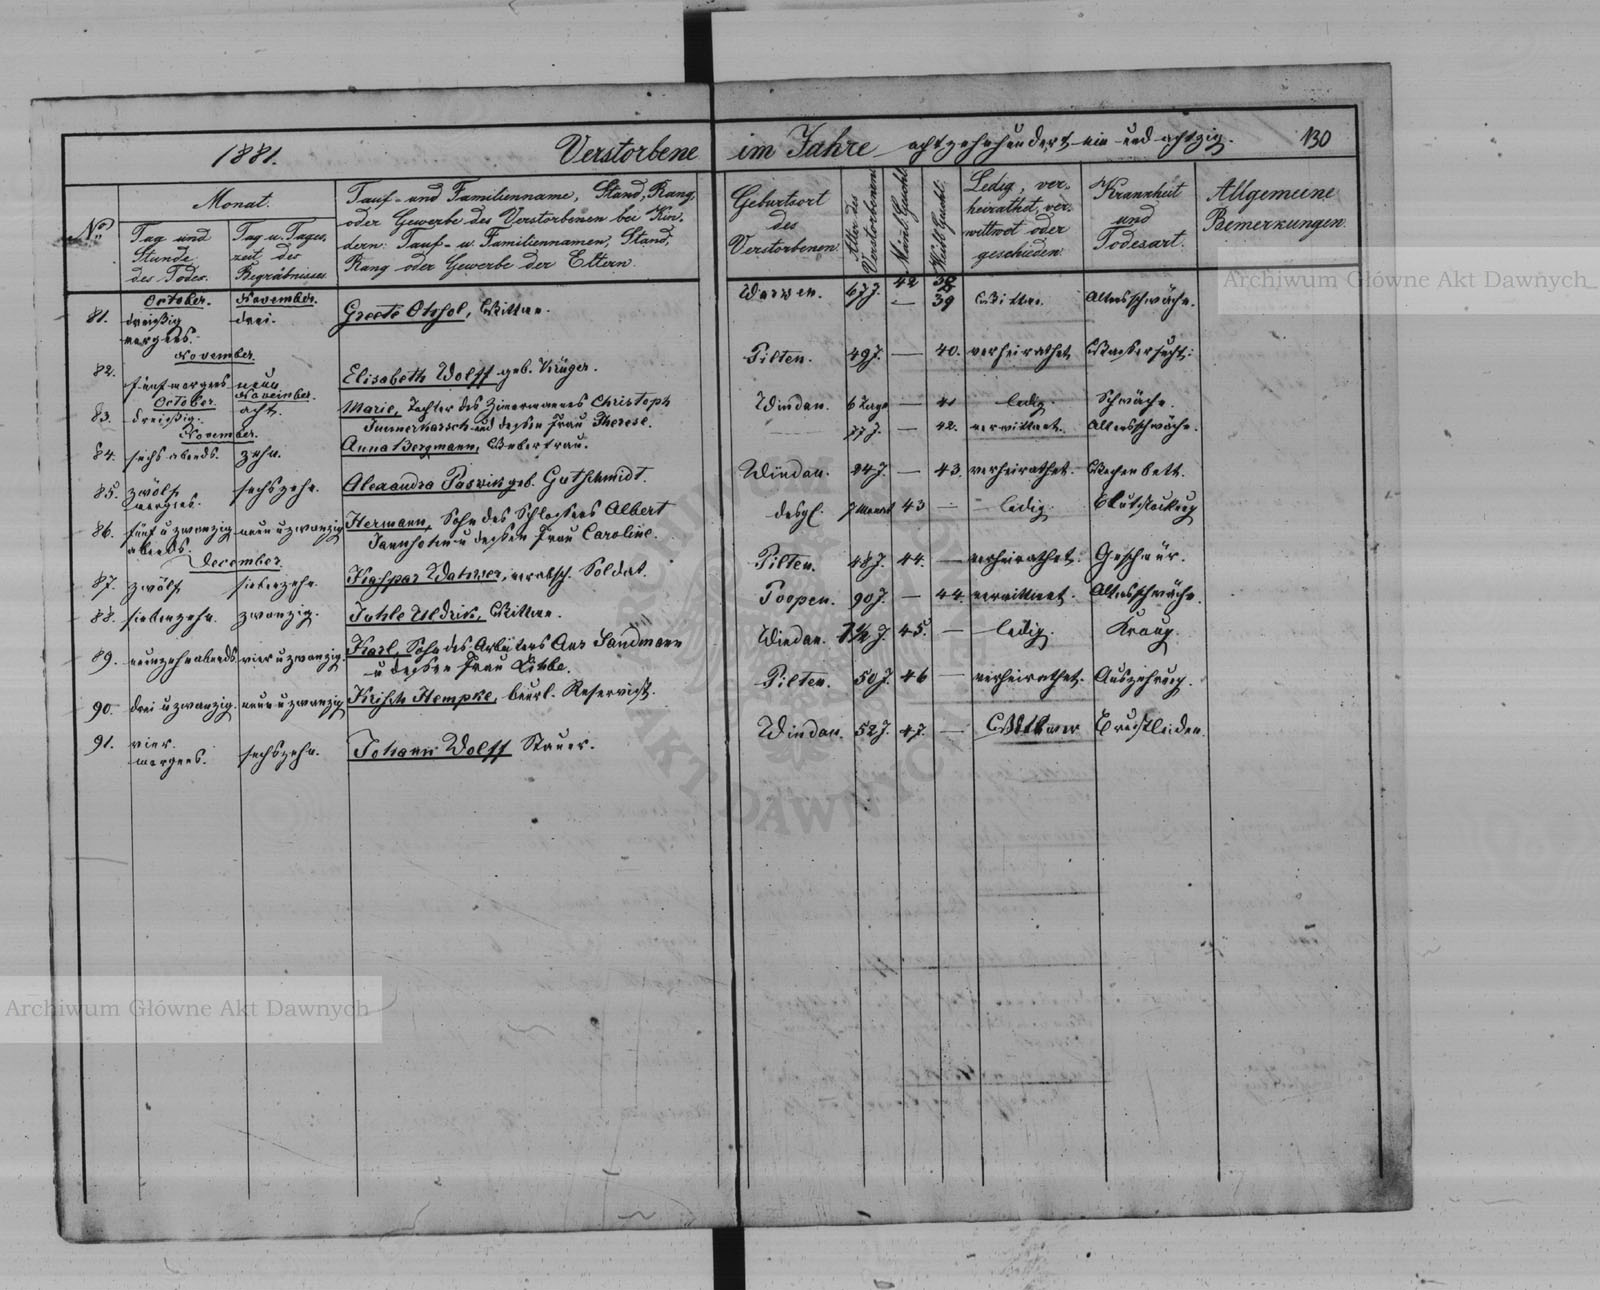 1881. Verstorbene im Jahre achtzehnhundert ein und achtzig. 130
No.
Monat.
Tag und Stunde des Todes.
Tag u. Tages- zeit des Begräbnisses
Tauf- und Familienname, Stand, Rang,
oder Gewerbe des Verstorbenen bei Kin-
dern: Tauf- u. Familiennamen, Stand,
Rang oder Gewerbe der Eltern.
Geburtsort des Verstorbenen.
Alter des Verstorbenen
Männl. Geschl.
Weibl. Geschl.
Ledig, ver-
heirathet, ver-
wittwet oder
geschieden.
Krankheit und Todesart.
Allgemeine Bemerkungen.
October. November. 42 38
81. dreißig morgens. drei. Greete Otshol, Wittwe. Warwen. 67 J. — 39 Wittwe. Altersschwäche.
November
82. fünf morgens neun Elisabeth Wolff geb. Krüger. Pilten. 49 J. — 40. verheirathet Wassersucht.
October. November.
83. dreißig. acht. Marie, Tochter des Zimermannes Christoph
und dessen Frau Therese. Windau. 6 Tage — 41 ledig. Schwäche.
November.
84. sechs abends. zehn. Anna Bergmann, Weberfrau. 77 J. — 42. verwittwet. Altersschwäche.
85. zwölf morgens. sechszehn. Alexandra Paswik geb. Gutschmidt. Windau. 24 J. — 43. verheirathet. Wochenbett.
86. fünf u zwanzig abends. neun u zwanzig Hermann, Sohn des Schlossers Albert
Jannsohn u dessen Frau Caroline. desgl. 7 Monat 43 — ledig. Blutstockung
December.
87. zwölf siebenzehn. Kaspar Watwer, verabsch. Soldat. Pilten. 48 J. 44. — verheirathet. Geschwür.
88. siebenzehn. zwanzig. Juhle Uldrik, Wittwe. Poopen. 90 J. — 44. verwittwet. Altersschwäche.
89. neunzehn abends vier u zwanzig. Karl, Sohn des Arbeiters Ans Sandmann
u dessen Frau Lihbe. Windau. 1½ J. 45. — ledig. Kroup.
90. drei u zwanzig. neun u zwanzig Krisch Hempke, beurl. Reservist. Pilten. 50 J. 46 — verheirathet. Auszehrung.
91. vier morgens. sechszehn. Johann Wolff Stauer. Windau. 52 J. 47. — Wittwer Brustleiden.
Archiwum Główne Akt Dawnych
Archiwum Główne Akt Dawnych
ARCHIWUM GŁÓWNE AKT DAWNYCH